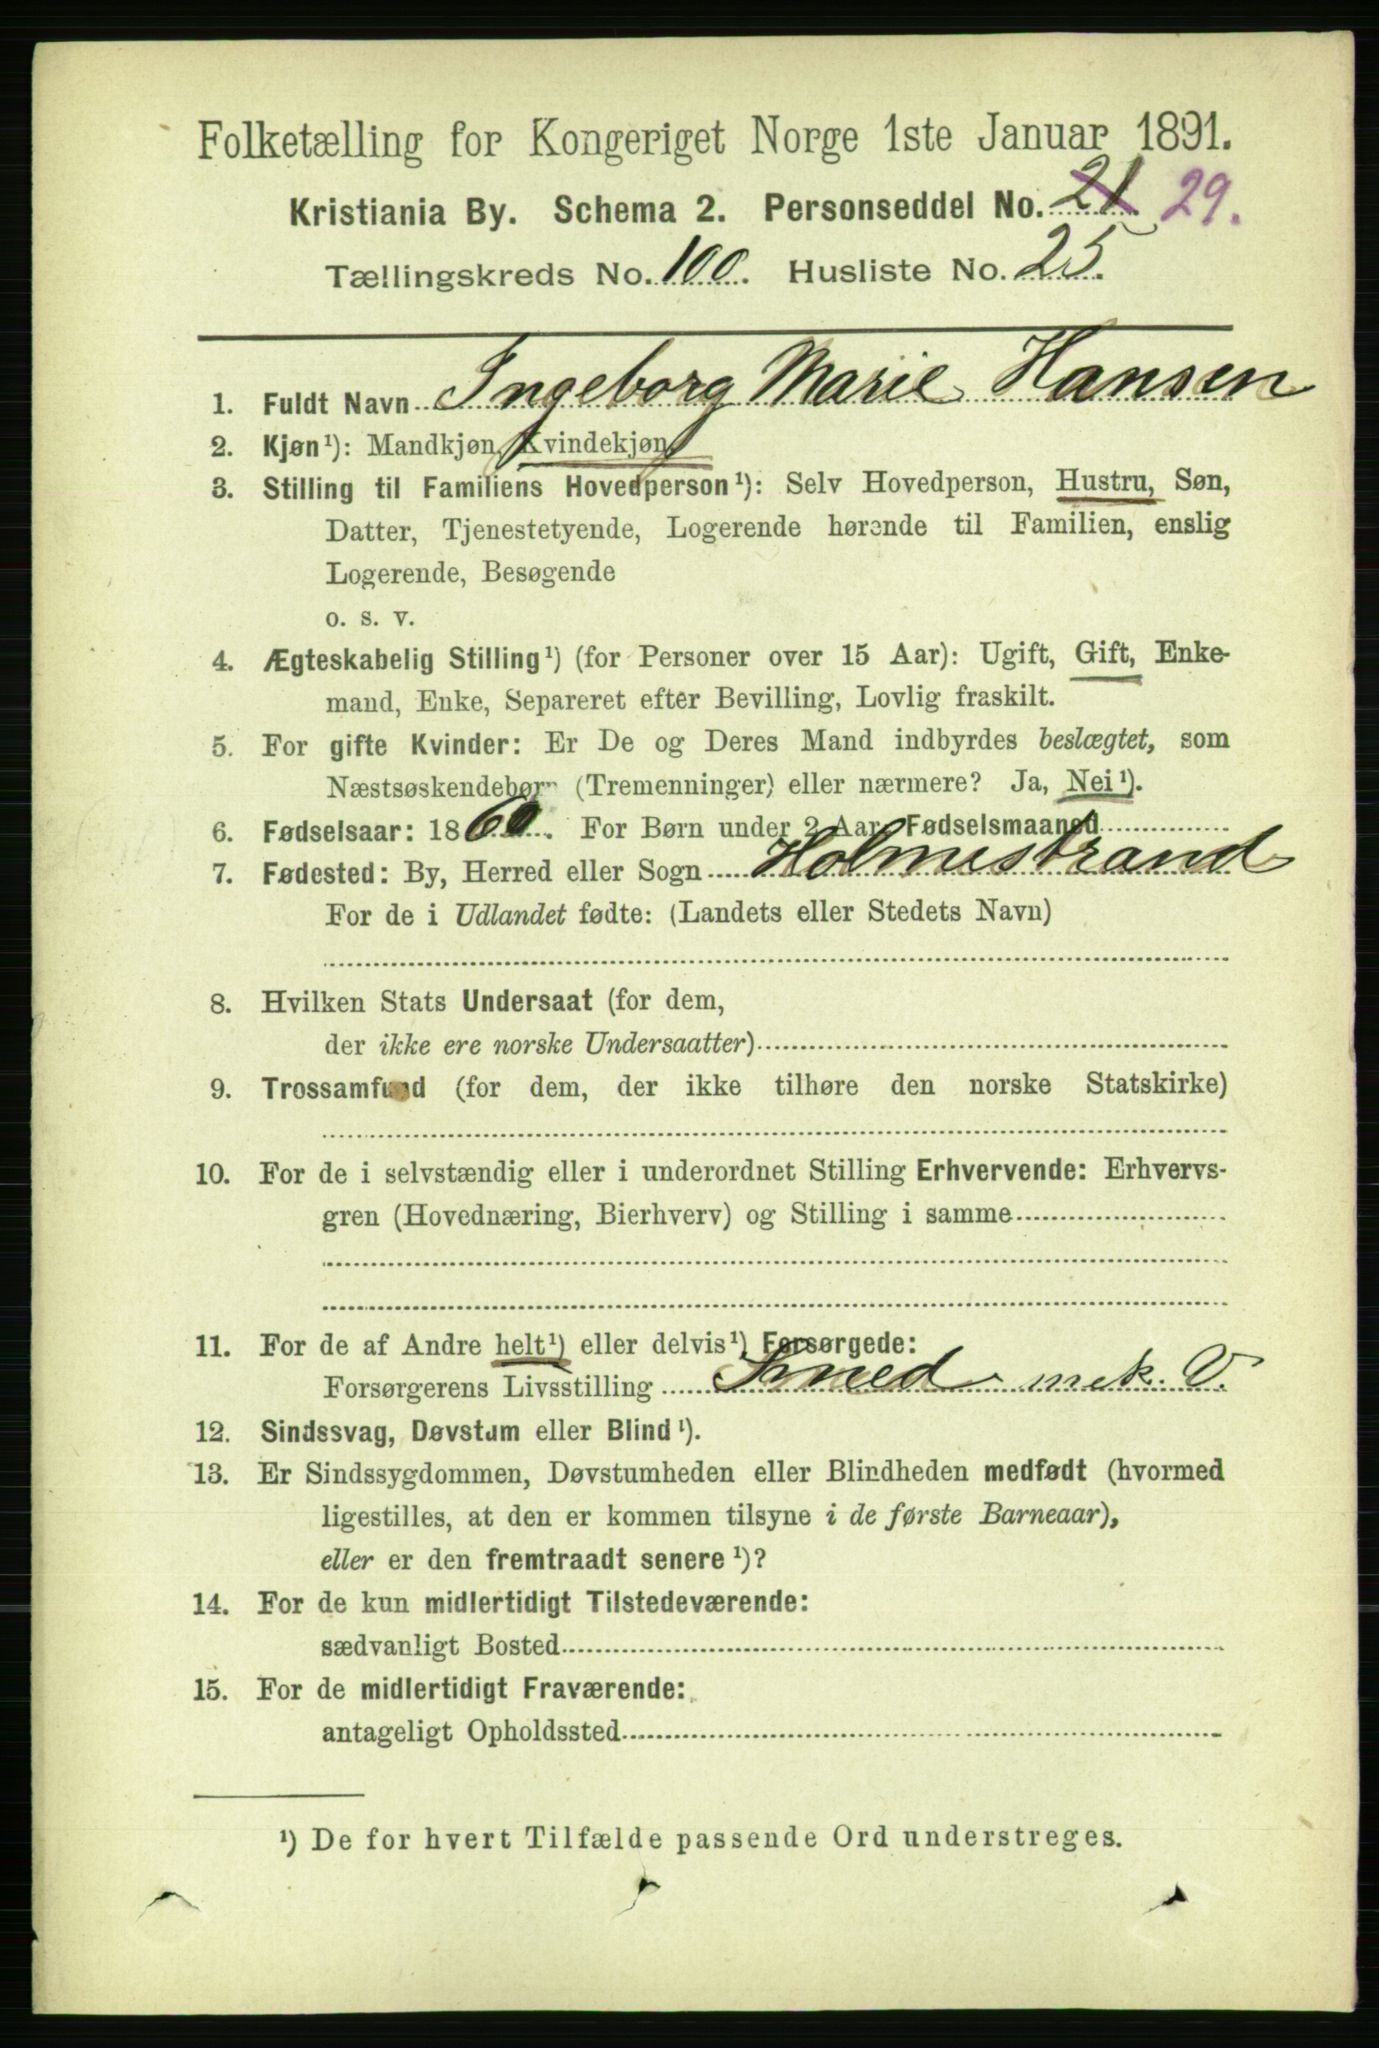 Folketælling for Kongeriget Norge 1ste Januar 1891.
Kristiania By. Schema 2. Personseddel No. 21 29.
Tællingskreds No. 100. Husliste No. 25.
1. Fuldt Navn Ingeborg Marie Hansen
2. Kjøn¹): Mandkjøn, Kvindekjøn
3. Stilling til Familiens Hovedperson¹): Selv Hovedperson, Hustru, Søn,
Datter, Tjenestetyende, Logerende hørende til Familien, enslig
Logerende, Besøgende
o. s. v.
4. Ægteskabelig Stilling¹) (for Personer over 15 Aar): Ugift, Gift, Enke-
mand, Enke, Separeret efter Bevilling, Lovlig fraskilt.
5. For gifte Kvinder: Er De og Deres Mand indbyrdes beslægtet, som
Næstsøskendebørn (Tremenninger) eller nærmere? Ja, Nei¹).
6. Fødselsaar: 1860. For Børn under 2 Aar Fødselsmaaned
7. Fødested: By, Herred eller Sogn Holmestrand
For de i Udlandet fødte: (Landets eller Stedets Navn)
8. Hvilken Stats Undersaat (for dem,
der ikke ere norske Undersaatter)
9. Trossamfund (for dem, der ikke tilhøre den norske Statskirke)
10. For de i selvstændig eller i underordnet Stilling Erhvervende: Erhvervs-
gren (Hovednæring, Bierhverv) og Stilling i samme
11. For de af Andre helt¹) eller delvis¹) Forsørgede:
Forsørgerens Livsstilling Smed mek. V.
12. Sindssvag, Døvstum eller Blind¹).
13. Er Sindssygdommen, Døvstumheden eller Blindheden medfødt (hvormed
ligestilles, at den er kommen tilsyne i de første Barneaar),
eller er den fremtraadt senere¹)?
14. For de kun midlertidigt Tilstedeværende:
sædvanligt Bosted
15. For de midlertidigt Fraværende:
antageligt Opholdssted
¹) De for hvert Tilfælde passende Ord understreges.